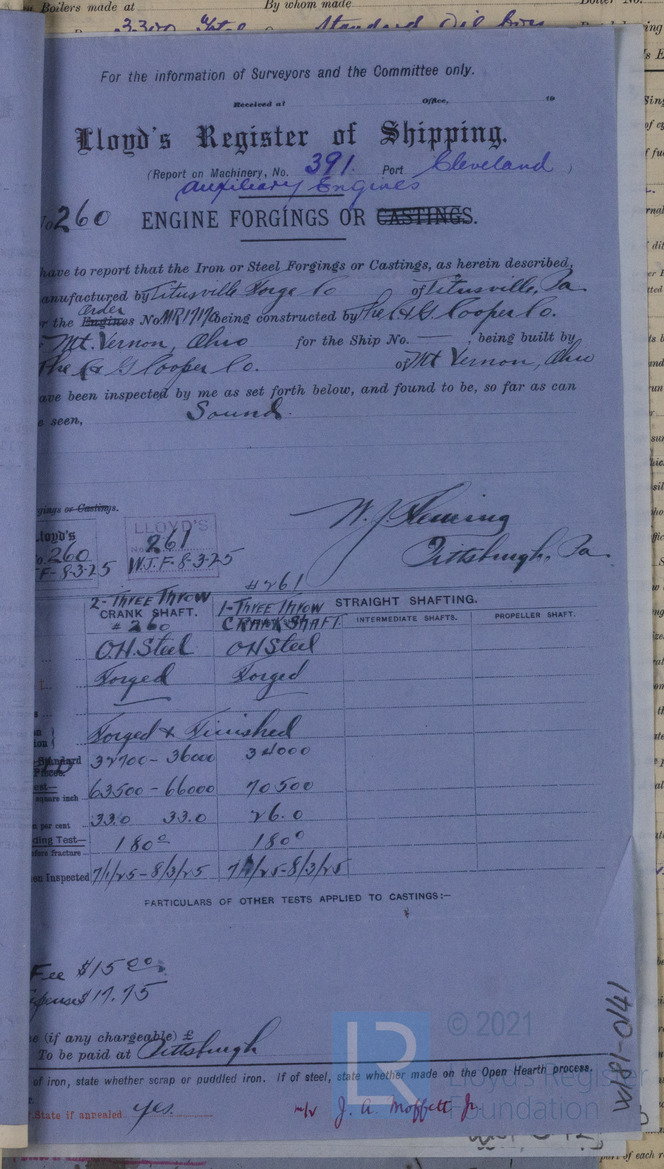 Boilers made at By whom made Boiler No.
3300 Standard Oil Co
For the information of Surveyors and the Committee only.
Received at Office, 19
Lloyd's Register of Shipping.
(Report on Machinery, No. 391. Port Cleveland )
Auxiliary Engines
No 260 ENGINE FORGINGS OR CASTINGS.
have to report that the Iron or Steel Forgings or Castings, as herein described,
anufactured by Titusville Forge Co of Titusville, Pa.
Order
r the Engines No. MR17170 being constructed by The C & G Cooper Co.
Mt. Vernon, Ohio for the Ship No. — , being built by
The C & G Cooper Co. of Mt Vernon, Ohio
ave been inspected by me as set forth below, and found to be, so far as can
e seen, Sound.
gings or Castings.
W. J. Fleming
Pittsburgh, Pa
Lloyd's LLOYD'S
No. 260 No. 261
F-8-3-25 W.J.F-8-3-25
# 261
2-THREE THROW 1-THREE THROW STRAIGHT SHAFTING.
CRANK SHAFT. CRANK SHAFT INTERMEDIATE SHAFTS. PROPELLER SHAFT.
# 260
O.H. Steel O.H Steel
Forged Forged
Forged & Finished
Standard 32700 - 36000 34000
Pieces.
est— 63500 - 66000 70500
square inch
n per cent 33.0 33.0 26.0
ding Test— 180° 180°
efore fracture
en Inspected 7/1/25-8/3/25 7/1/25-8/3/25
PARTICULARS OF OTHER TESTS APPLIED TO CASTINGS:—
Fee $15.00
xpenses $17.75
e (if any chargeable) £
To be paid at Pittsburgh
of iron, state whether scrap or puddled iron. If of steel, state whether made on the Open Hearth process.
State if annealed yes.
m/v J. A. Moffett Jr.
W181-0141
LR © 2021
Lloyd's Register
Foundation